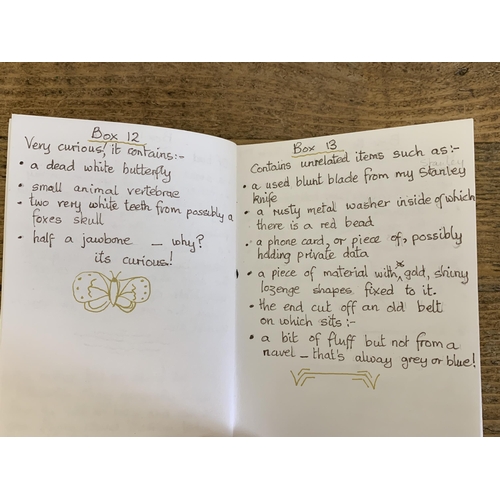 Box 12
Very curious, it contains:-
• a dead white butterfly
• small animal vertebrae
• two very white teeth from possibly a
foxes skull
• half a jawbone – why?
its curious!
Box 13
Contains unrelated items such as:-
Stanley
• a used blunt blade from my Stanley
knife
• a rusty metal washer inside of which
there is a red bead
• a phone card, or piece of, possibly
holding private data
• a piece of material with gold, shiny
lozenge shapes fixed to it.
• the end cut off an old belt
on which sits:-
• a bit of fluff but not from a
navel – that's alway grey or blue!